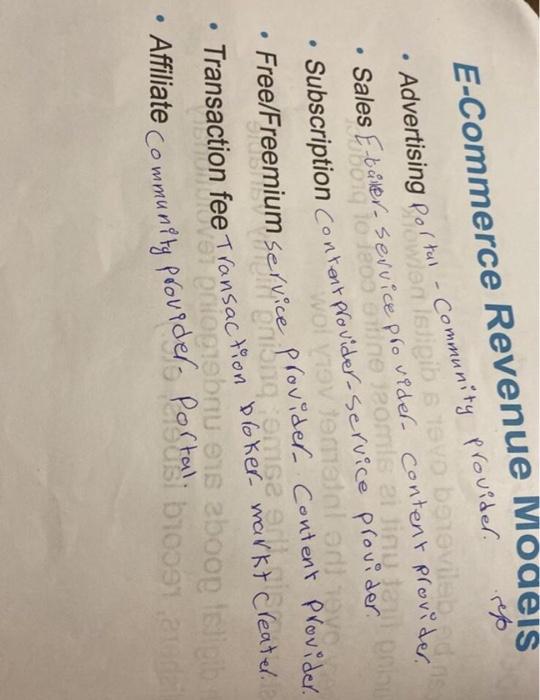 E-Commerce Revenue Models
• Advertising Portal - Community provider.
• Sales E-tailer- service provider- content provider.
• Subscription Content provider-service provider.
• Free/Freemium service provider- Content provider.
• Transaction fee Transaction bloker- markt creater.
• Affiliate community provider- portal.